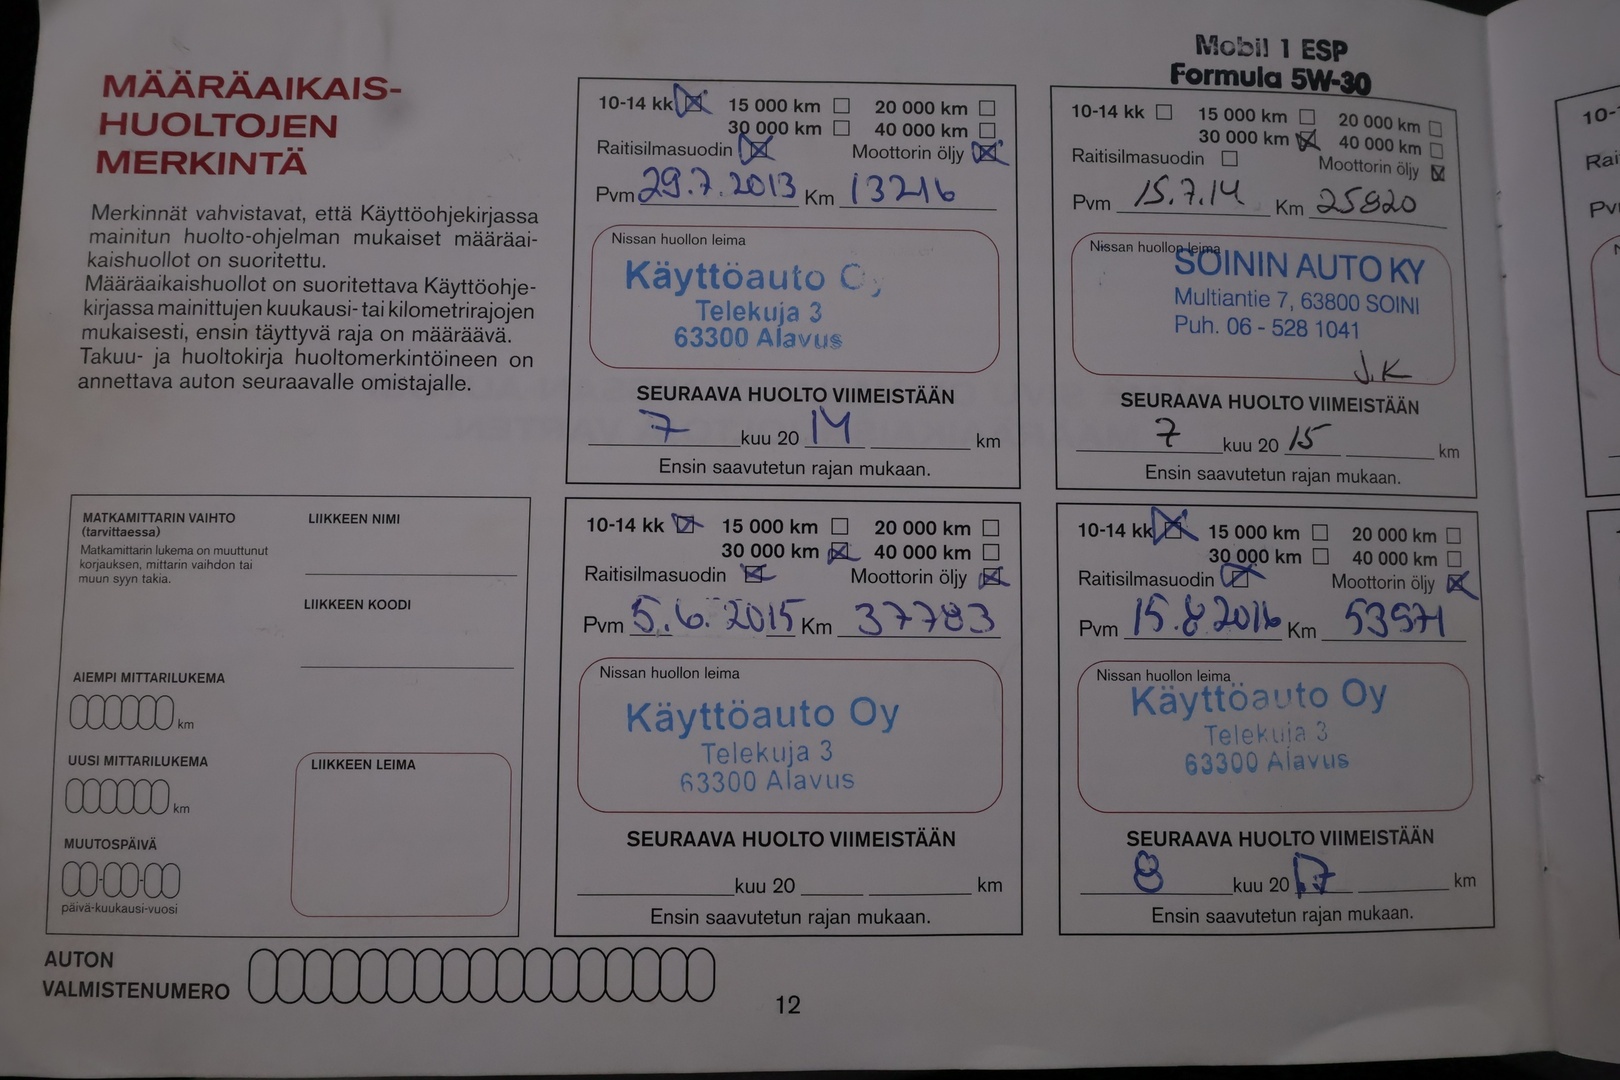 MÄÄRÄAIKAIS-
HUOLTOJEN
MERKINTÄ
Merkinnät vahvistavat, että Käyttöohjekirjassa
mainitun huolto-ohjelman mukaiset määräai-
kaishuollot on suoritettu.
Määräaikaishuollot on suoritettava Käyttöohje-
kirjassa mainittujen kuukausi- tai kilometrirajojen
mukaisesti, ensin täyttyvä raja on määräävä.
Takuu- ja huoltokirja huoltomerkintöineen on
annettava auton seuraavalle omistajalle.
10-14 kk 15 000 km 20 000 km
30 000 km 40 000 km
Raitisilmasuodin Moottorin öljy
Pvm 29.7.2013 Km 13216
Nissan huollon leima
Käyttöauto Oy
Telekuja 3
63300 Alavus
SEURAAVA HUOLTO VIIMEISTÄÄN
7 kuu 20 14 km
Ensin saavutetun rajan mukaan.
Mobil 1 ESP
Formula 5W-30
10-14 kk 15 000 km 20 000 km
30 000 km 40 000 km
Raitisilmasuodin Moottorin öljy
Pvm 15.7.14 Km 25820
Nissan huollon leima
SOININ AUTO KY
Multiantie 7, 63800 SOINI
Puh. 06 - 528 1041
J.K
SEURAAVA HUOLTO VIIMEISTÄÄN
7 kuu 20 15 km
Ensin saavutetun rajan mukaan.
MATKAMITTARIN VAIHTO
(tarvittaessa)
Matkamittarin lukema on muuttunut
korjauksen, mittarin vaihdon tai
muun syyn takia.
LIIKKEEN NIMI
LIIKKEEN KOODI
AIEMPI MITTARILUKEMA
km
UUSI MITTARILUKEMA
km
MUUTOSPÄIVÄ
päivä-kuukausi-vuosi
LIIKKEEN LEIMA
10-14 kk 15 000 km 20 000 km
30 000 km 40 000 km
Raitisilmasuodin Moottorin öljy
Pvm 5.6.2015 Km 37783
Nissan huollon leima
Käyttöauto Oy
Telekuja 3
63300 Alavus
SEURAAVA HUOLTO VIIMEISTÄÄN
kuu 20 km
Ensin saavutetun rajan mukaan.
10-14 kk 15 000 km 20 000 km
30 000 km 40 000 km
Raitisilmasuodin Moottorin öljy
Pvm 15.8.2016 Km 53571
Nissan huollon leima
Käyttöauto Oy
Telekuja 3
63300 Alavus
SEURAAVA HUOLTO VIIMEISTÄÄN
8 kuu 20 17 km
Ensin saavutetun rajan mukaan.
AUTON
VALMISTENUMERO
12
10-
Rai
Pv